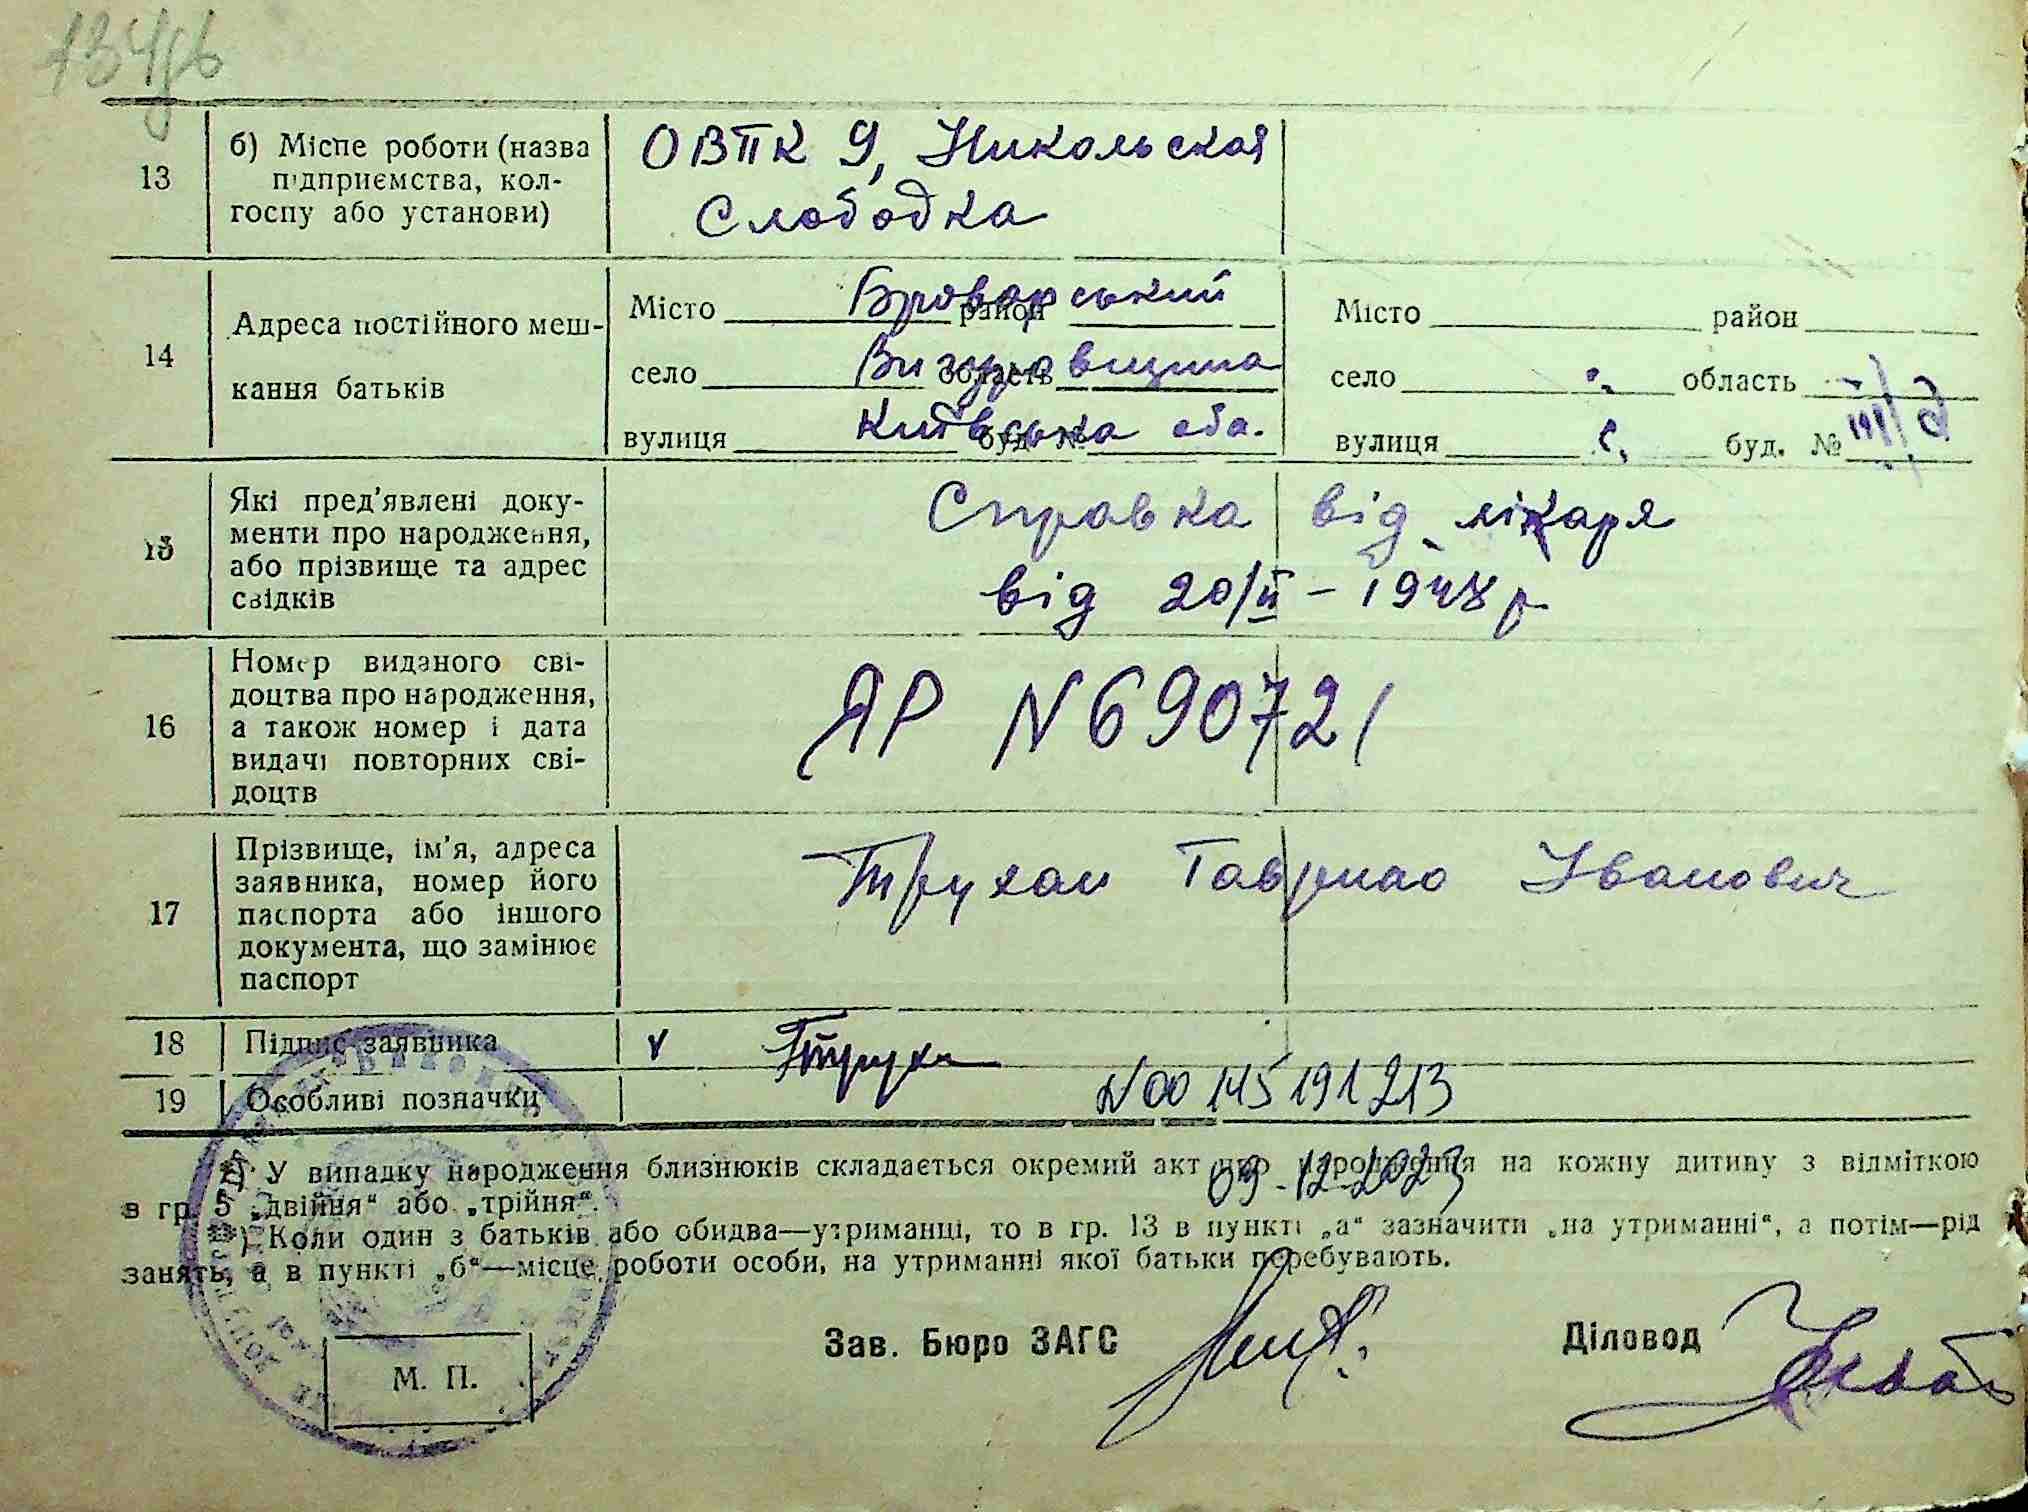 13
б) Місце роботи (назва
підприємства, кол-
госпу або установи)
ОВПК 9, Никольская
Слободка
14
Адреса постійного меш-
кання батьків
Місто район Броварський
село область Вигурівщина
вулиця буд. № Київська обл.
Місто район
село область
вулиця буд. №
15
Які пред’явлені доку-
менти про народження,
або прізвище та адрес
свідків
Справка від лікаря
від 20/II – 1948 р.
16
Номер виданого сві-
доцтва про народження,
а також номер і дата
видачі повторних сві-
доцтв
ЯР N 690721
17
Прізвище, ім’я, адреса
заявника, номер його
паспорта або іншого
документа, що замінює
паспорт
Трухан Гаврило Іванович
18
Підпис заявника
v Трухан
19
Особливі позначки
N00145191213
09.12.2023
*) У випадку народження близнюків складається окремий акт про народження на кожну дитину з відміткою
в гр. 5 „двійня“ або „трійня“.
**) Коли один з батьків або обидва—утриманці, то в гр. 13 в пункті „а“ зазначити „на утриманні“, а потім—рід
занять, а в пункті „б“—місце роботи особи, на утриманні якої батьки перебувають.
Зав. Бюро ЗАГС
Діловод
М. П.